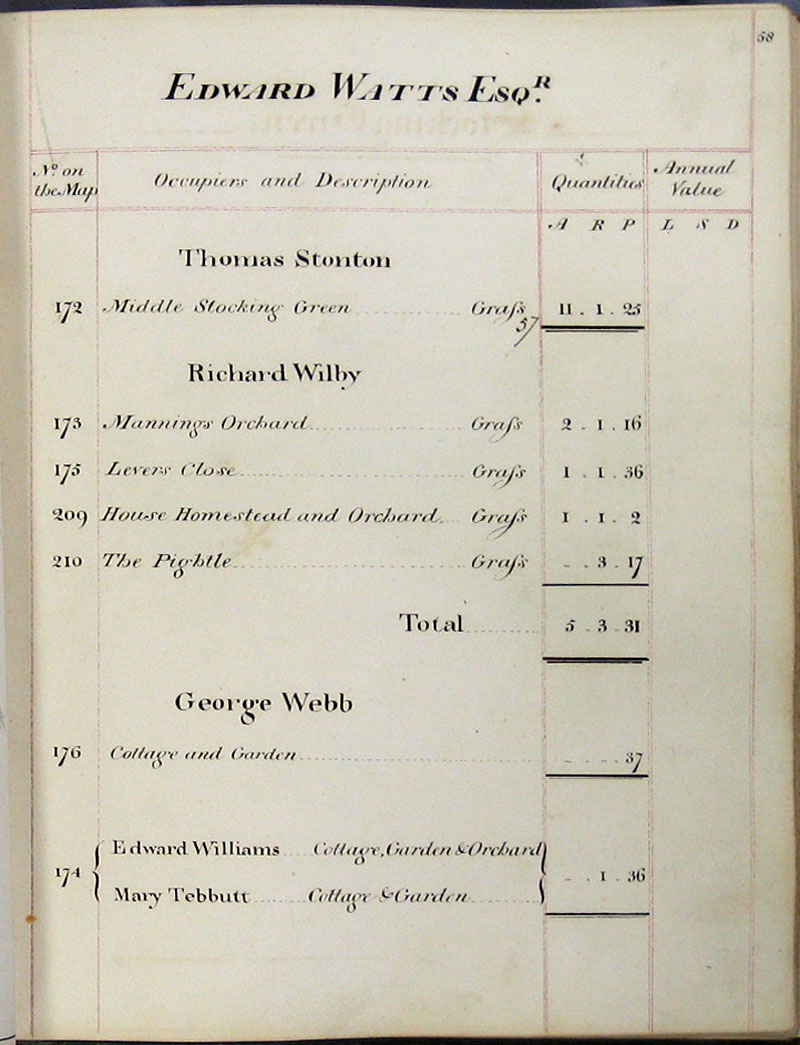 58
EDWARD WATTS ESQR.
No. on the Map Occupiers and Description Quantities Annual Value
A R P L S D
Thomas Stonton
172 Middle Stocking Green Graſs 11 . 1 . 25
57
Richard Wilby
173 Mannings Orchard Graſs 2 . 1 . 16
175 Levers Close Graſs 1 . 1 . 36
209 House Homestead and Orchard Graſs 1 . 1 . 2
210 The Pightle Graſs - . 3 . 17
Total 5 . 3 . 31
George Webb
176 Cottage and Garden - . - . 37
174 Edward Williams Cottage, Garden & Orchard - . 1 . 36
Mary Tebbutt Cottage & Garden